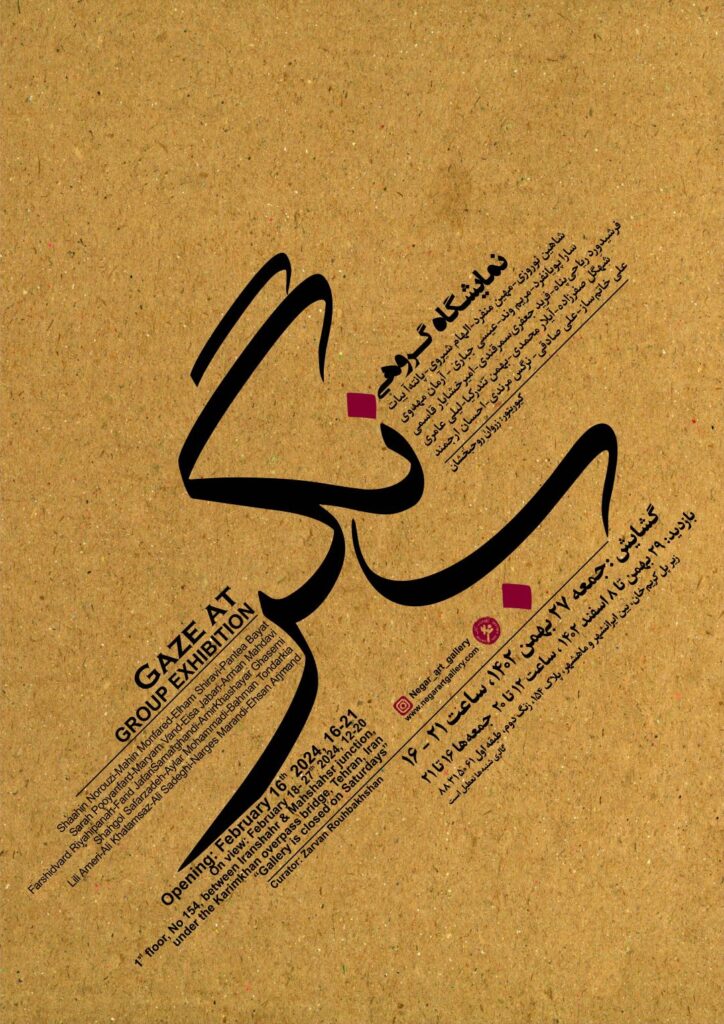 بنگر
نمایشگاه گروهی
شاهین نوروزی-مهین منفرد-الهام شیروی-پانته‌آ بیات
سارا پویانفرد-مریم وند-عیسی جباری-آرمان مهدوی
فرشیدورد ریاحی‌پناه-فرید جعفری‌سمرقندی-امیرخشایار قاسمی
شهگل صفرزاده-آیلار محمدی-بهمن تندرکیا-لیلی عامری
علی خاتم‌ساز-علی صادقی-نرگس مرندی-احسان ارجمند
کیوریتور: زروان روح‌بخشان
گشایش: جمعه ۲۷ بهمن ۱۴۰۲، ساعت ۲۱ - ۱۶
بازدید: ۲۹ بهمن تا ۸ اسفند ۱۴۰۲، ساعت ۱۲ تا ۲۰ جمعه‌ها ۱۶ تا ۲۱
زیر پل کریم‌خان، بین ایرانشهر و ماهشهر، پلاک ۱۵۴، زنگ دوم، طبقه اول
گالری شنبه‌ها تعطیل است
Negar_art_gallery
www.negarartgallery.com
GAZE AT
GROUP EXHIBITION
Shaahin Norouzi-Mahin Monfared-Elham Shiravi-Pantea Bayat
Sarah Pooyanfard-Maryam Vand-Eisa Jabari-Arman Mahdavi
Farshidvard Riyahipanah-Farid JafariSamarghandi-AmirKhashayar Ghasemi
Shahgol Safarzadeh-Aylar Mohammadi-Bahman Tondarkia
Lili Ameri-Ali Khatamsaz-Ali Sadeghi-Narges Marandi-Ehsan Arjmand
Opening: February 16th 2024, 16-21
On view: February 18- 27th 2024, 12-20
1st floor, No 154, between Iranshahr & Mahshahsr junction,
under the Karimkhan overpass bridge, Tehran, Iran
"Gallery is closed on Saturdays"
Curator: Zarvan Rouhbakhshan